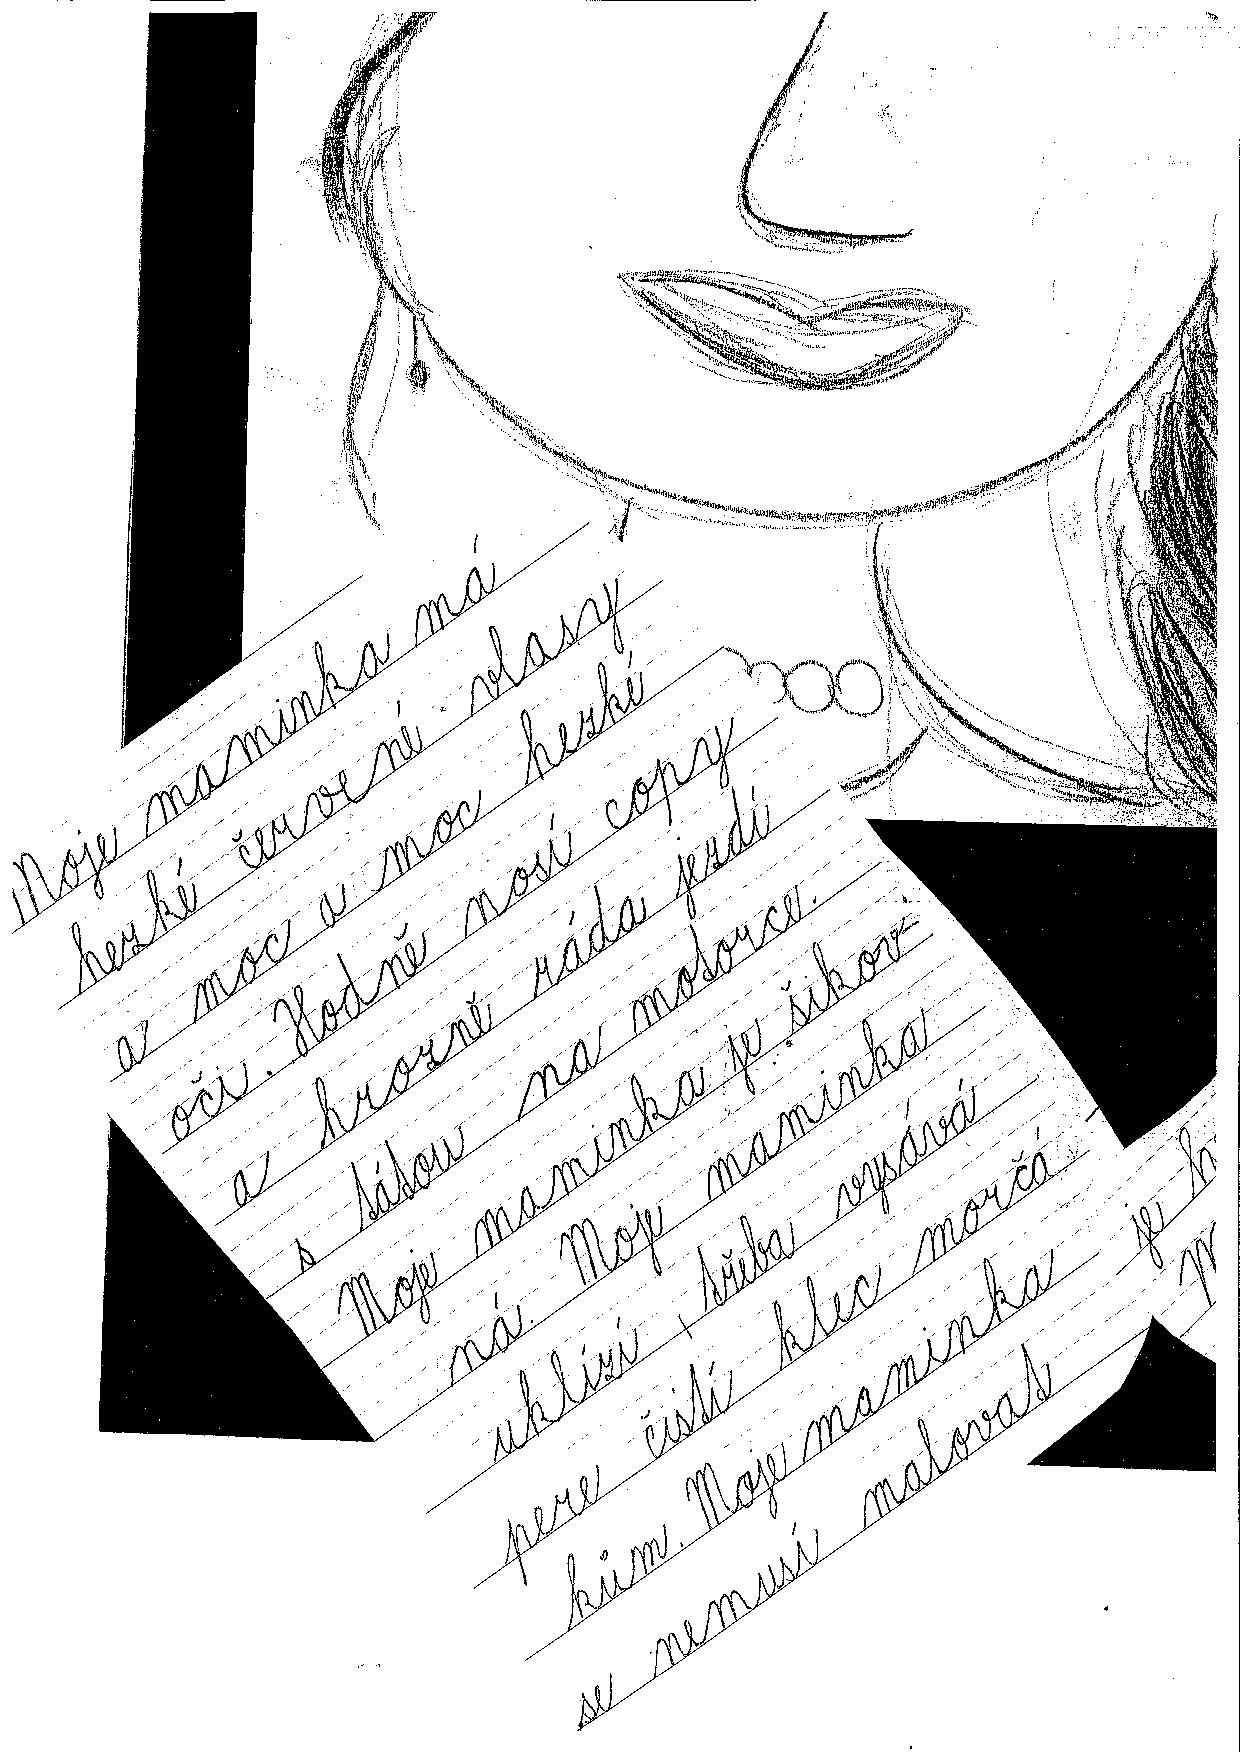 Moje maminka má
hezké červené vlasy
a moc a moc hezké
oči. Hodně nosí copy
a hrozně ráda jezdí
s tátou na motorce.
Moje maminka je šikov-
ná. Moje maminka
uklízí, třeba vysává
pere čistí klec morčá
kům. Moje maminka je h
se nemusí malovat M